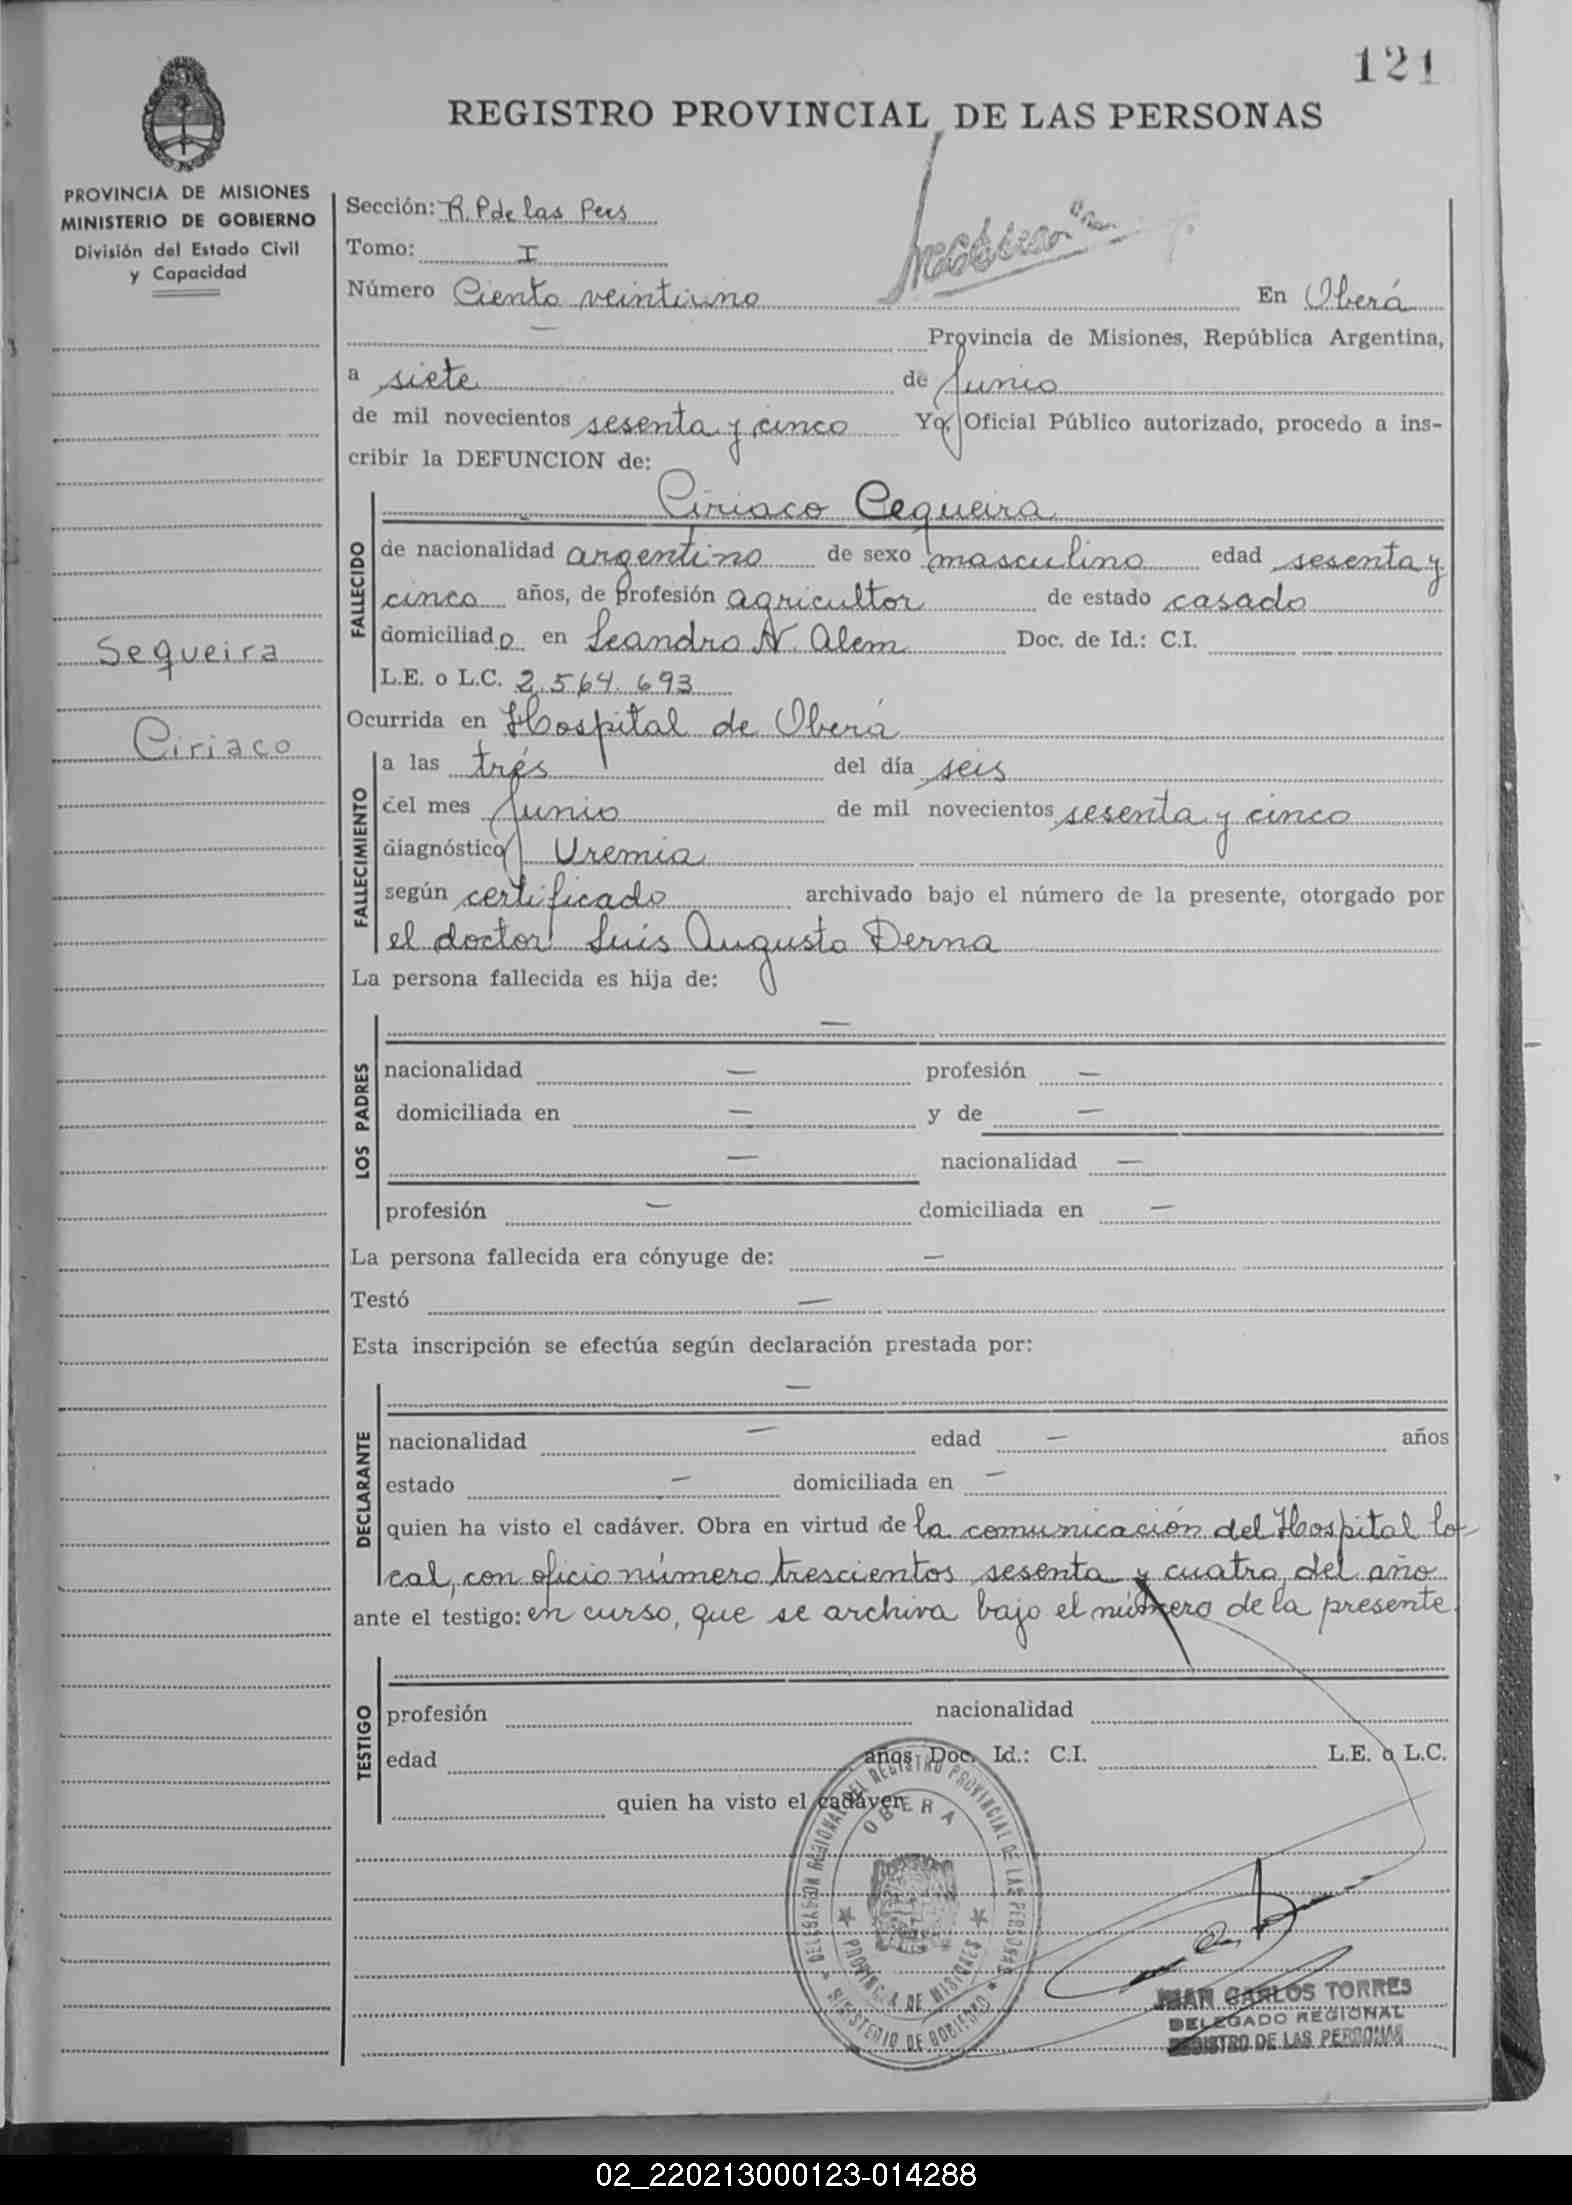 121
REGISTRO PROVINCIAL DE LAS PERSONAS
PROVINCIA DE MISIONES
MINISTERIO DE GOBIERNO
División del Estado Civil
y Capacidad
Sección: R.P de las Pers
Tomo: I
Número Ciento veintiuno En Oberá
— Provincia de Misiones, República Argentina,
a siete de Junio
de mil novecientos sesenta y cinco Yo, Oficial Público autorizado, procedo a ins-
cribir la DEFUNCION de:
Ciriaco Cequeira
FALLECIDO
de nacionalidad argentino de sexo masculino edad sesenta y
cinco años, de profesión agricultor de estado casado
domiciliado en Leandro N. Alem Doc. de Id.: C.I.
L.E. o L.C. 2.564.693
Sequeira
Ciriaco
Ocurrida en Hospital de Oberá
FALLECIMIENTO
a las trés del día seis
del mes Junio de mil novecientos sesenta y cinco
diagnóstico Uremia
según certificado archivado bajo el número de la presente, otorgado por
el doctor Luis Augusto Derna
La persona fallecida es hija de:
—
LOS PADRES
nacionalidad — profesión —
domiciliada en — y de —
— nacionalidad —
profesión — domiciliada en —
La persona fallecida era cónyuge de: —
Testó —
Esta inscripción se efectúa según declaración prestada por:
—
DECLARANTE
nacionalidad — edad — años
estado — domiciliada en —
quien ha visto el cadáver. Obra en virtud de la comunicación del Hospital lo-
cal, con oficio número trescientos sesenta y cuatro del año
ante el testigo: en curso, que se archiva bajo el número de la presente.
TESTIGO
profesión nacionalidad
edad años Doc. Id.: C.I. L.E. o L.C.
quien ha visto el cadáver.
DELEGACION REGIONAL DEL REGISTRO PROVINCIAL DE LAS PERSONAS
OBERA
PROVINCIA DE MISIONES
MINISTERIO DE GOBIERNO
JUAN CARLOS TORRES
DELEGADO REGIONAL
REGISTRO DE LAS PERSONAS
02_220213000123-014288